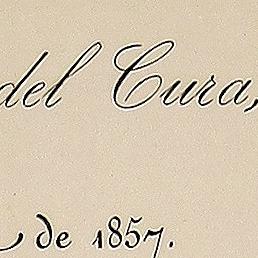 del Cura,
de 1857.